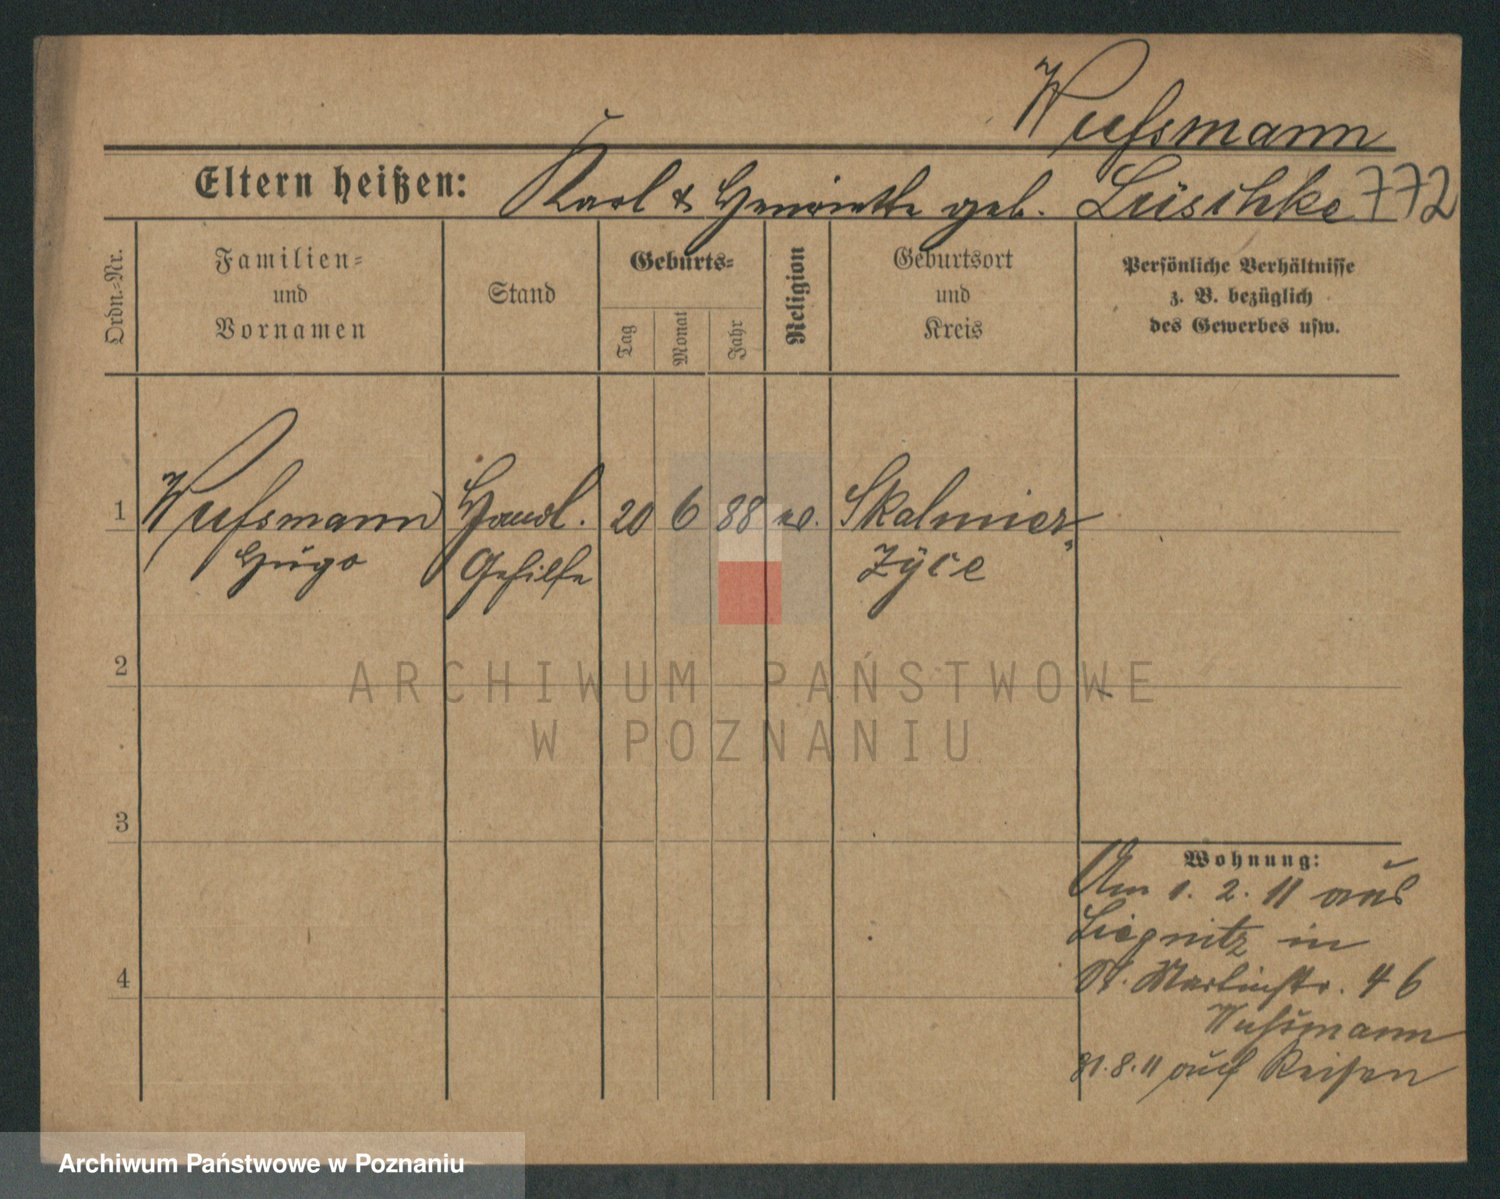 Wussmann
Eltern heißen: Karl & Henriette geb. Lüschke 772
Ordn.-Nr.
Familien-
und
Vornamen
Stand
Geburts-
Tag
Monat
Jahr
Religion
Geburtsort
und
Kreis
Persönliche Verhältnisse
z. B. bezüglich
des Gewerbes usw.
1 Wussmann Handl. 20 6 88 ev. Skalmier-
Hugo Gehilfe zyce
2
ARCHIWUM PAŃSTWOWE
W POZNANIU
3
Wohnung:
Am 1. 2. 11 aus
Liegnitz in
St. Martinstr. 46
4
Wussmann
31.8.11 auf Reisen
Archiwum Państwowe w Poznaniu